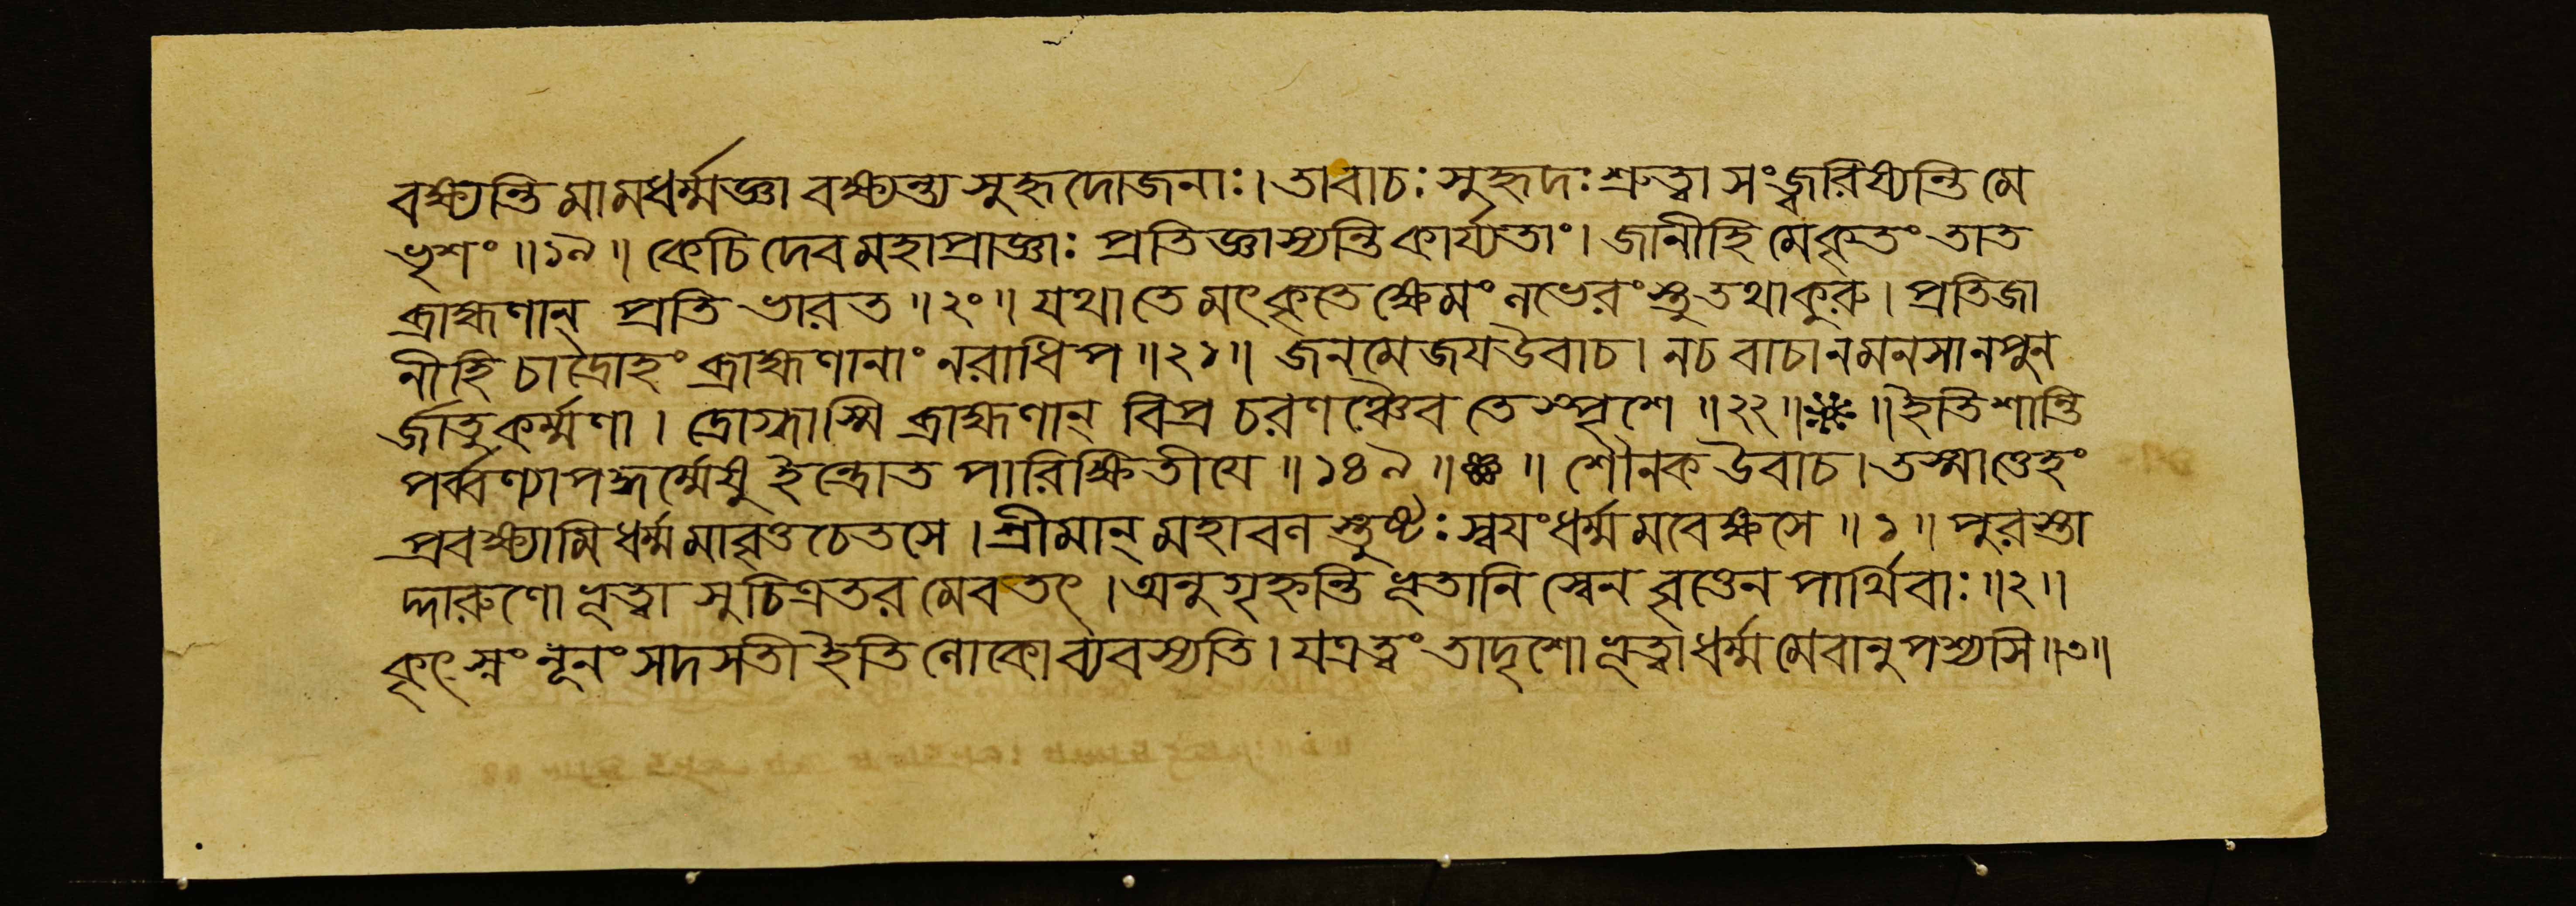 বক্ষ্যন্তি মামধর্ম্মজ্ঞা বক্ষ্যন্ত্য সুহৃদোজনাঃ। তাবাচঃ সুহৃদঃ শ্রুত্বা সংজ্বরিষ্যন্তি মে
ভৃশং ॥১৯॥ কেচিদেবমহাপ্রাজ্ঞাঃ প্রতিজ্ঞাস্যন্তি কার্য্যতাং। জানীহি মেকৃতং তাত
ব্রাহ্মণান্ প্রতি ভারত ॥২০॥ যথা তে মৎকৃতে ক্ষেমং লভেরংস্তু তথাকুরু। প্রতিজা
নীহি চাদ্রোহং ব্রাহ্মণানাং নরাধিপ ॥২১॥ জনমেজয উবাচ। নচ বাচা নমনসা নপুন
র্জাতু কর্ম্মণা। দ্রোগ্ধাস্মি ব্রাহ্মণান্ বিপ্র চরণঞ্চৈব তে স্পৃশে ॥২২॥ ॥ ইতি শান্তি
পর্ব্বণ্যাপদ্ধর্ম্মেষু ইন্দ্রোত পারিক্ষিতীযে ॥১৪৯॥ ॥ শৌনক উবাচ। তস্মাত্তেহং
প্রবক্ষ্যামি ধর্ম্মমাবৃত্তচেতসে। শ্রীমান্ মহাবলস্তুষ্টঃ স্বযং ধর্ম্মমবেক্ষসে ॥১॥ পুরস্তা
দ্দারুণো ভূত্বা সুচিত্রতরমেবতৎ। অনুগৃহ্নন্তি ভূতানি স্বেন বৃত্তেন পার্থিবাঃ ॥২॥
কৃৎস্নং নূনং সদসতী ইতি লোকো ব্যবস্যতি। যত্রত্বং তাদৃশো ভূত্বা ধর্ম্মমেবানুপশ্যসি ॥৩॥